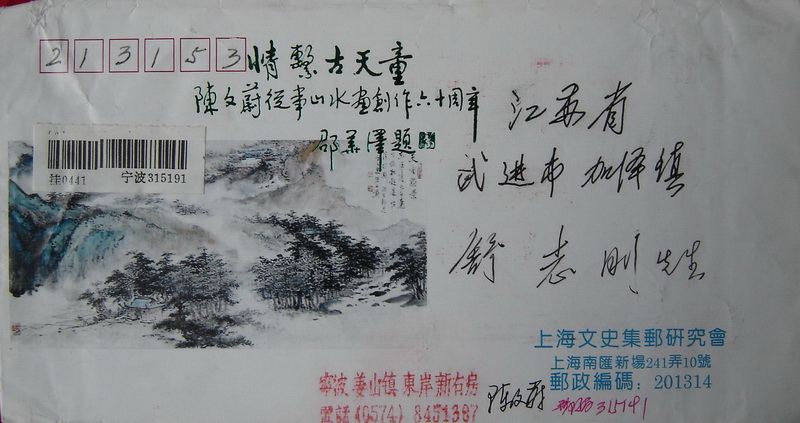 213153
情繫古天童
陳文蔚從事山水畫創作六十周年
邵華澤題
挂0441 宁波315191
江苏省
武进市 加泽镇
舒志刚先生
上海文史集郵研究會
上海南匯新場241弄10號
郵政編碼：201314
寧波 姜山镇 東岸新右房
電話(0574) 8451387
陈文蔚
315191